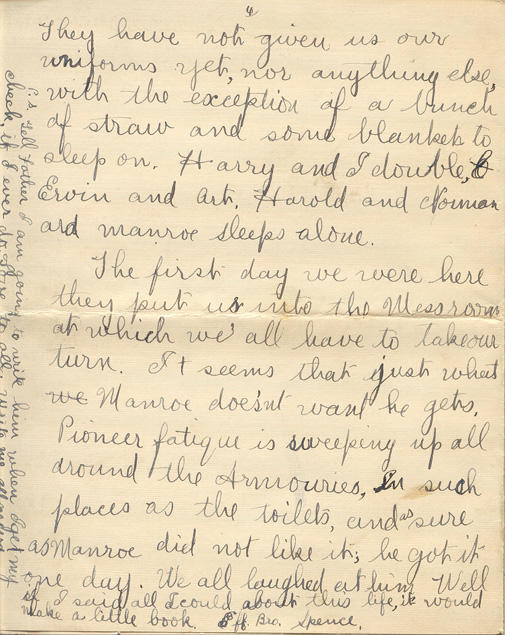 4
They have not given us our
uniforms yet, nor anything else,
with the exception of a bunch
of straw and some blankets to
sleep on. Harry and I double, &
Ervin and Art. Harold and Norman
and manroe sleeps alone.
The first day we were here
they put us into the Messroom
at which we all have to take our
turn. It seems that just what
we Manroe does'nt want he gets.
Pioneer fatigue is sweeping up all
around the Armouries, In such
places as the toilets, and as sure
as Manroe did not like it; he got it
one day. We all laughed at him. Well
if I said all I could about this life, it would
make a little book. Aff. Bro. Spence.
P.S. Tell Father I am going to write him when I get my
check, if I ever do. Love to all. Write me all